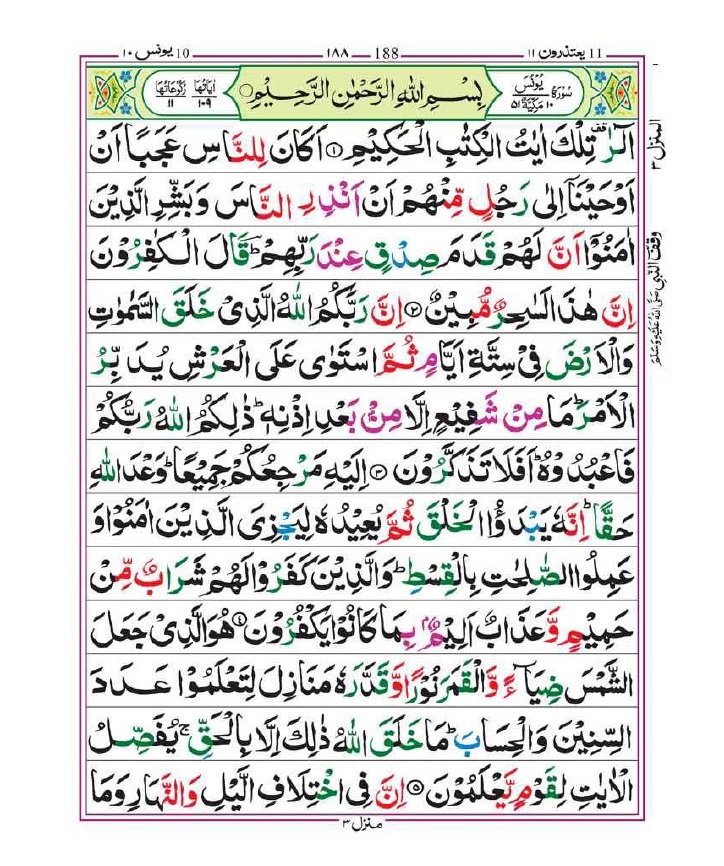 11 یعتذرون ۱۱ — 188 — ۱۸۸ — 10 یونس ۱۰
سُوْرَةُ یُوْنُسَ ۱۰ مَكِّيَّةٌ ۵۱ بِسْمِ اللهِ الرَّحْمٰنِ الرَّحِيْمِ اٰيَاتُهَا ۱۰۹ رُكُوْعَاتُهَا ۱۱
الٓرٰ قف تِلْكَ اٰيٰتُ الْكِتٰبِ الْحَكِيْمِ ۱ اَكَانَ لِلنَّاسِ عَجَبًا اَنْ
اَوْحَيْنَاۤ اِلٰى رَجُلٍ مِّنْهُمْ اَنْ اَنْذِرِ النَّاسَ وَبَشِّرِ الَّذِيْنَ
اٰمَنُوْۤا اَنَّ لَهُمْ قَدَمَ صِدْقٍ عِنْدَ رَبِّهِمْ ؔ قَالَ الْكٰفِرُوْنَ
اِنَّ هٰذَا لَسٰحِرٌ مُّبِيْنٌ ۲ اِنَّ رَبَّكُمُ اللهُ الَّذِيْ خَلَقَ السَّمٰوٰتِ
وَالْاَرْضَ فِيْ سِتَّةِ اَيَّامٍ ثُمَّ اسْتَوٰى عَلَى الْعَرْشِ يُدَبِّرُ
الْاَمْرَ ؕ مَا مِنْ شَفِيْعٍ اِلَّا مِنْۢ بَعْدِ اِذْنِهٖ ؕ ذٰلِكُمُ اللهُ رَبُّكُمْ
فَاعْبُدُوْهُ ؕ اَفَلَا تَذَكَّرُوْنَ ۳ اِلَيْهِ مَرْجِعُكُمْ جَمِيْعًا ؕ وَعْدَ اللهِ
حَقًّا ؕ اِنَّهٗ يَبْدَؤُا الْخَلْقَ ثُمَّ يُعِيْدُهٗ لِيَجْزِيَ الَّذِيْنَ اٰمَنُوْا وَ
عَمِلُوا الصّٰلِحٰتِ بِالْقِسْطِ ؕ وَالَّذِيْنَ كَفَرُوْا لَهُمْ شَرَابٌ مِّنْ
حَمِيْمٍ وَّعَذَابٌ اَلِيْمٌۢ بِمَا كَانُوْا يَكْفُرُوْنَ ۴ هُوَ الَّذِيْ جَعَلَ
الشَّمْسَ ضِيَآءً وَّالْقَمَرَ نُوْرًا وَّقَدَّرَهٗ مَنَازِلَ لِتَعْلَمُوْا عَدَدَ
السِّنِيْنَ وَالْحِسَابَ ؕ مَا خَلَقَ اللهُ ذٰلِكَ اِلَّا بِالْحَقِّ ۚ يُفَصِّلُ
الْاٰيٰتِ لِقَوْمٍ يَّعْلَمُوْنَ ۵ اِنَّ فِي اخْتِلَافِ الَّيْلِ وَالنَّهَارِ وَمَا
منزل ۳
المنزل ۳
وقف النبی صلى الله عليه وسلم